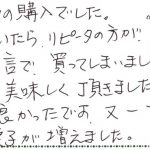 の購入でした。
いたら、リピータの方が
言で、買ってしまいまし
美味しく頂きました
悪かったです。又一つ
子が増えました。